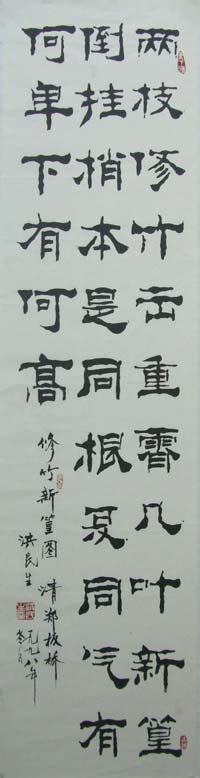 两枝修竹出重霄几叶新篁
倒挂梢本是同根复同气有
何卑下有何高
修竹新篁图 清郑板桥
洪民生
一九九八年